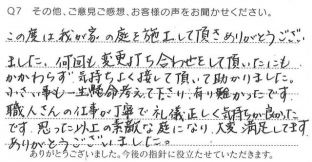 Q7 その他、ご意見ご感想、お客様の声をお聞かせください。
この度は我が家の庭を施工して頂きありがとうござい
ました。何回も変更打ち合わせをして頂いたにも
かかわらず、気持ちよく接して頂いて助かりました。
小さい事も一生懸命考えて下さり、有り難かったです。
職人さんの仕事が丁寧で礼儀正しく気持ちが良かった
です。思った以上の素敵な庭になり、大変満足してます。
ありがとうございました。
ありがとうございました。今後の指針に役立たせていただきます。